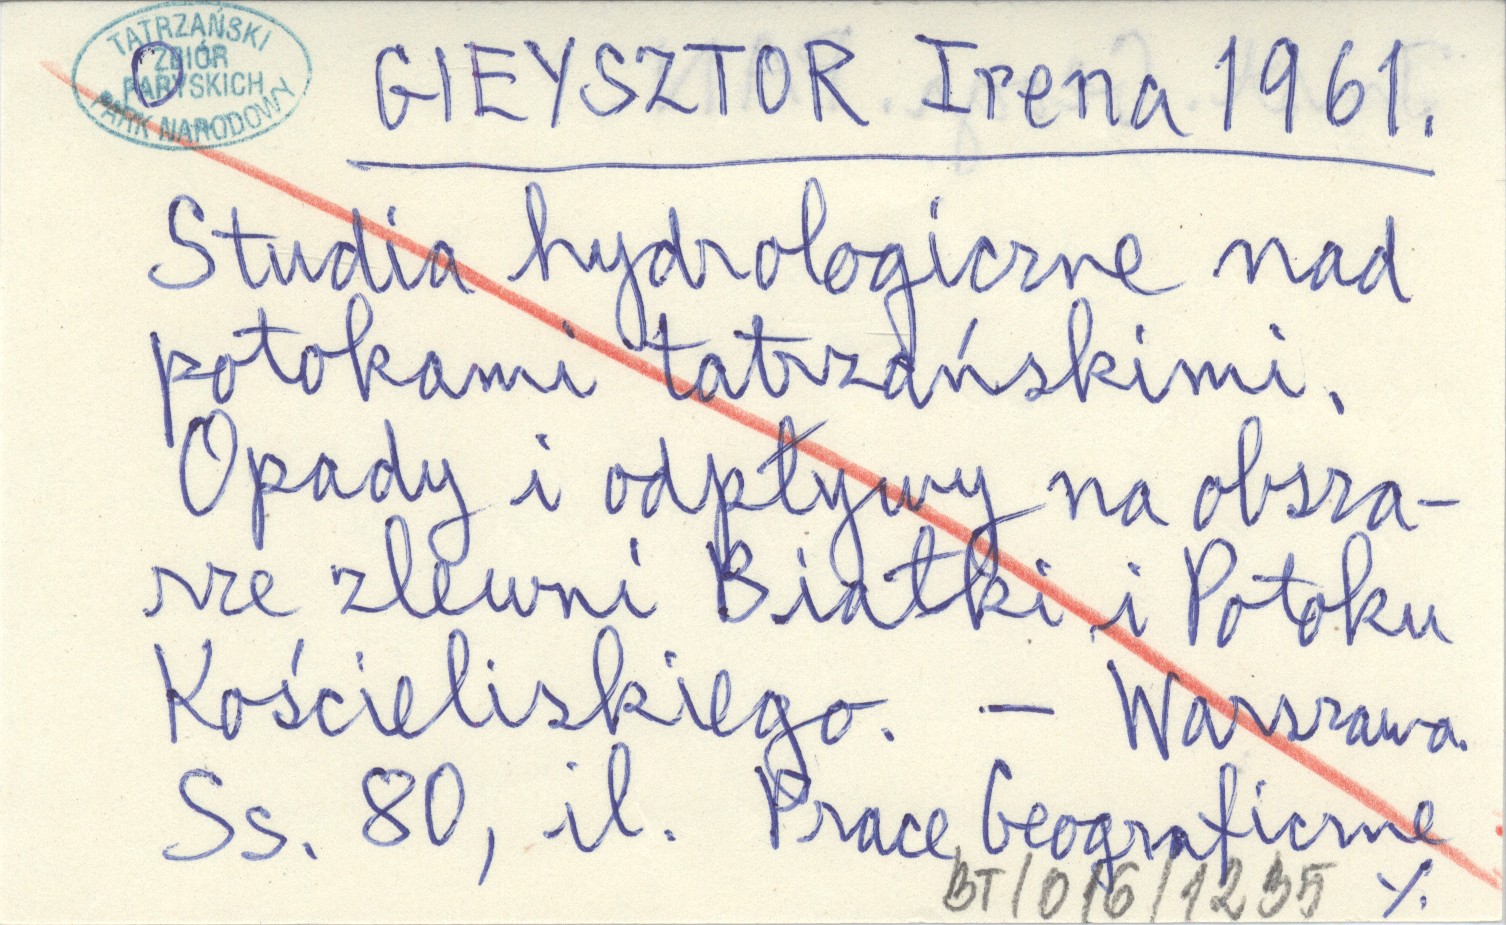 TATRZAŃSKI
ZBIÓR
PARYSKICH
PARK NARODOWY
O GIEYSZTOR Irena 1961.
Studia hydrologiczne nad
potokami tatrzańskimi.
Opady i odpływy na obsza-
rze zlewni Białki i Potoku
Kościeliskiego. — Warszawa.
Ss. 80, il. Prace Geograficzne
BT/O/6/1235 ·/.